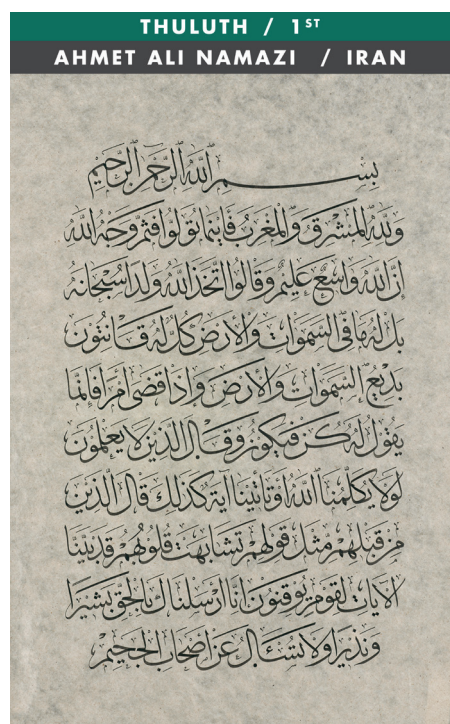 THULUTH / 1ST
AHMET ALI NAMAZI / IRAN
بسم الله الرحمن الرحيم
ولله المشرق والمغرب فاينما تولوا فثم وجه الله
ان الله واسع عليم وقالوا اتخذ الله ولدا سبحانه
بل له ما في السموات والارض كل له قانتون
بديع السموات والارض واذا قضى امرا فانما
يقول له كن فيكون وقال الذين لا يعلمون
لولا يكلمنا الله او تاتينا اية كذلك قال الذين
من قبلهم مثل قولهم تشابهت قلوبهم قد بينا
الايات لقوم يوقنون انا ارسلناك بالحق بشيرا
ونذيرا ولا تسئال عن اصحاب الجحيم